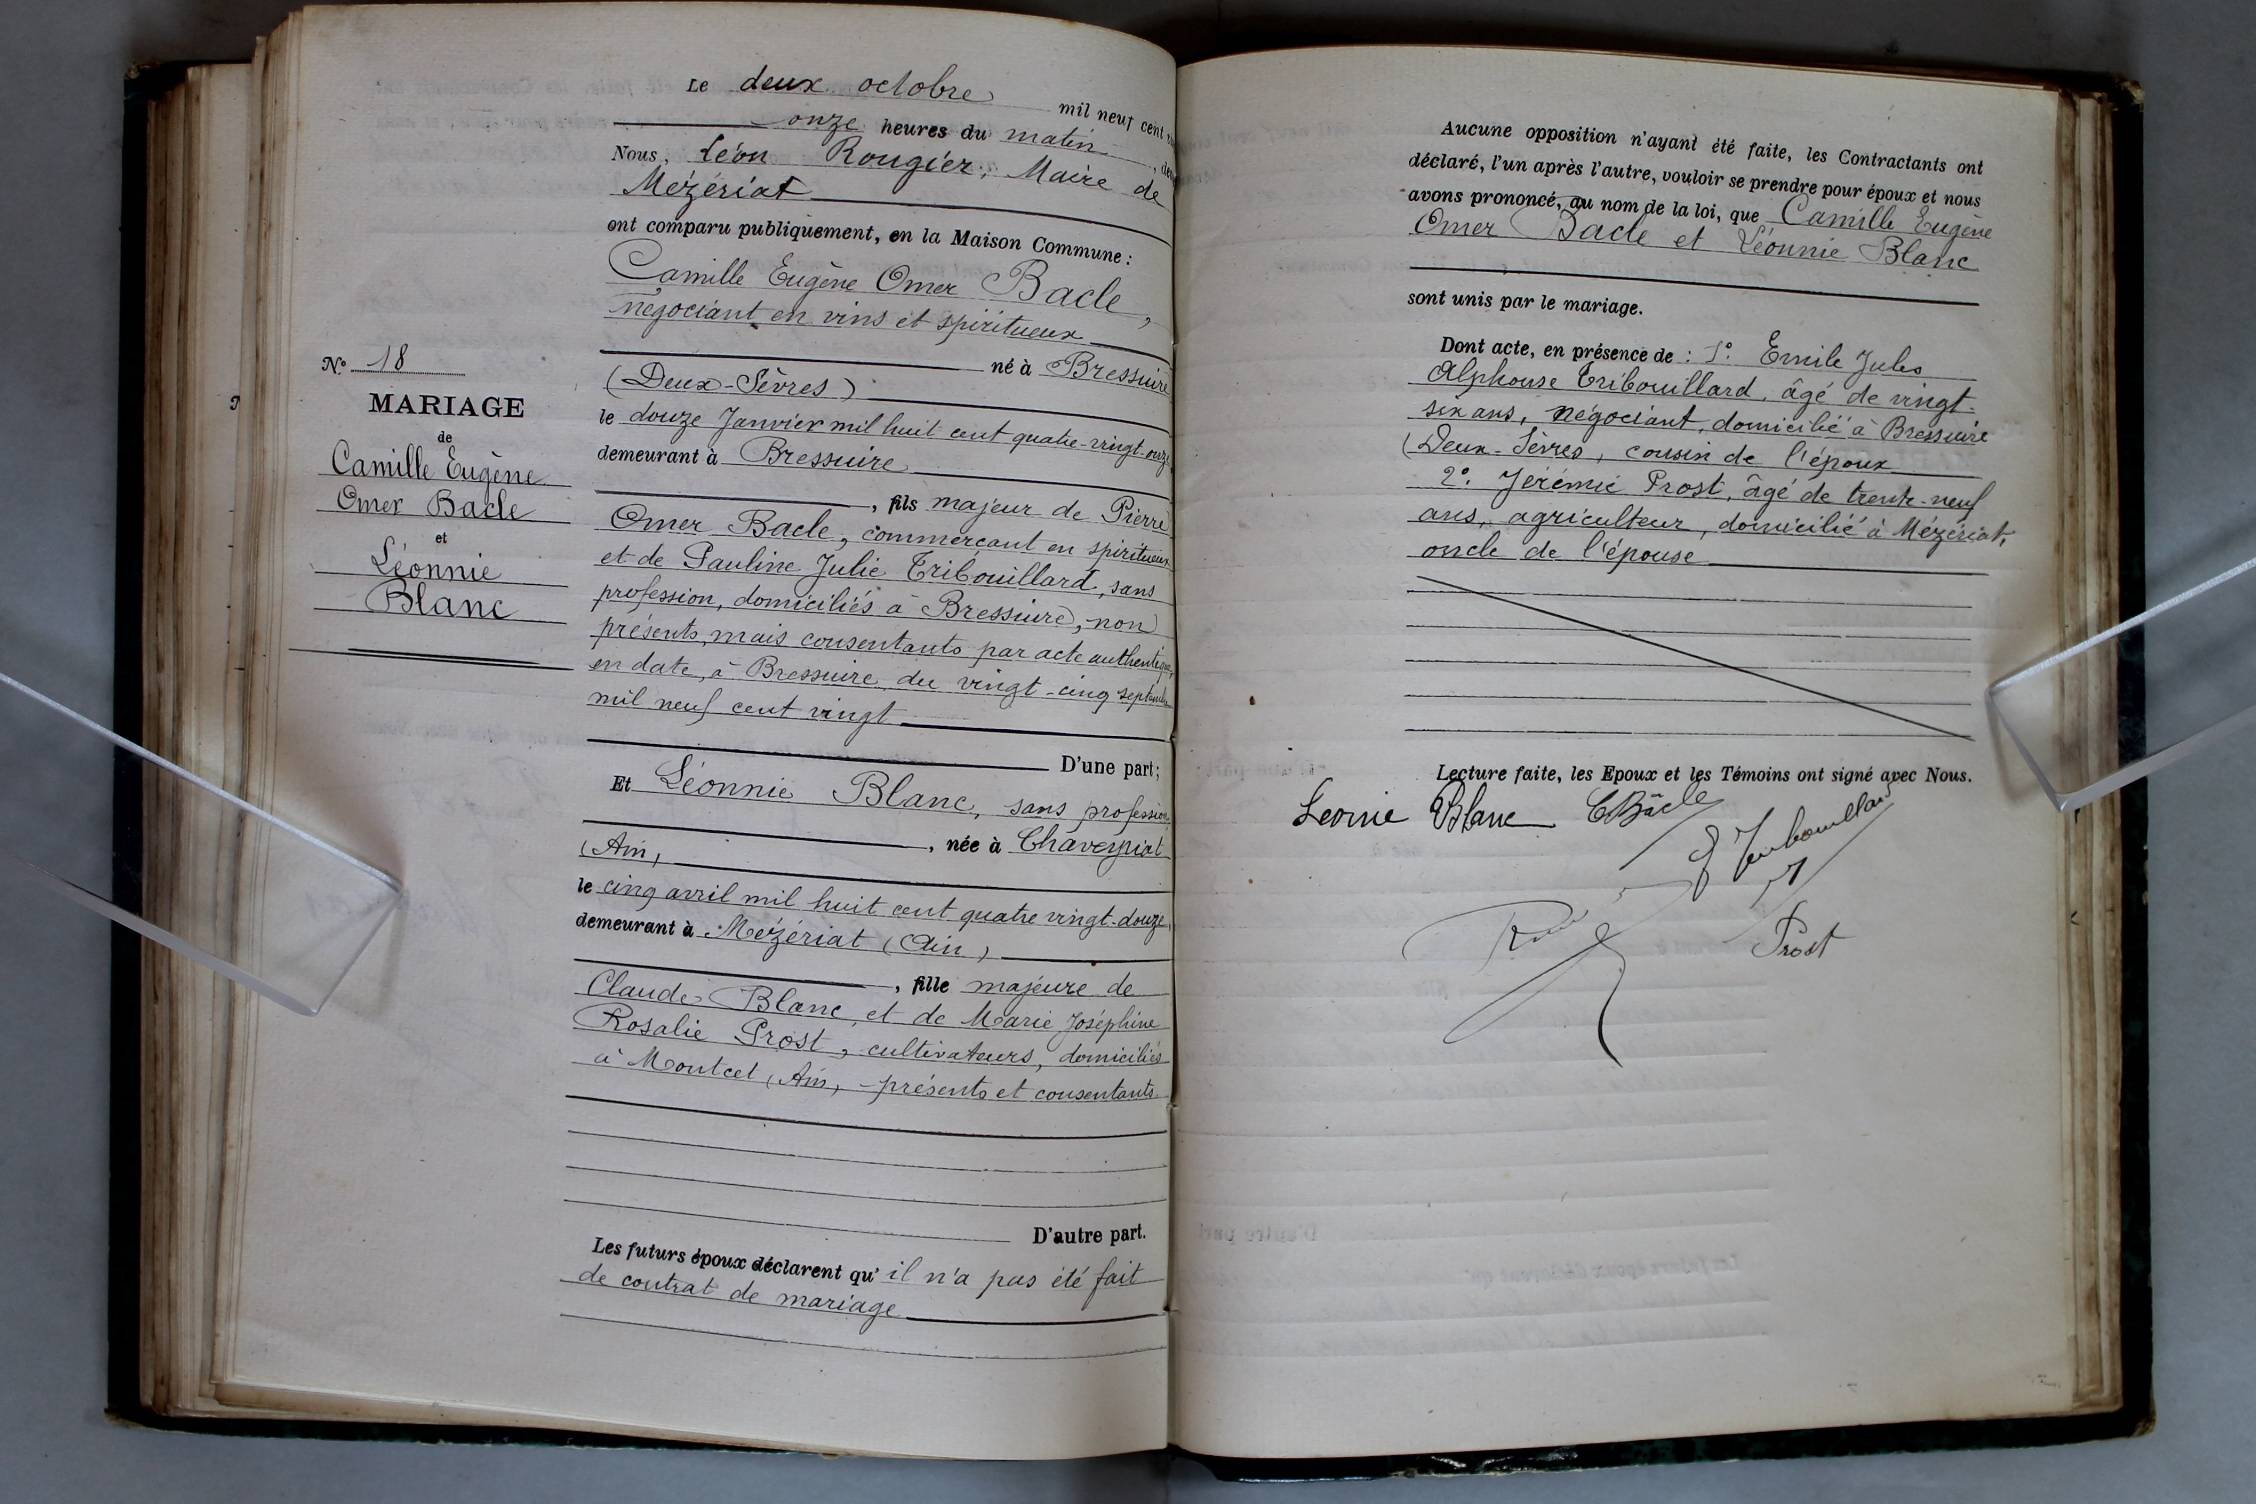 Le deux octobre mil neuf cent
onze heures du matin,
Nous, Léon Rougier, Maire de
Mézériat
ont comparu publiquement, en la Maison Commune :
Camille Eugène Omer Bacle,
négociant en vins et spiritueux
né à Bressuire
(Deux-Sèvres)
le douze Janvier mil huit cent quatre-vingt-onze
demeurant à Bressuire
, fils majeur de Pierre
Omer Bacle, commerçant en spiritueux
et de Pauline Julie Tribouillard, sans
profession, domiciliés à Bressuire, non
présents, mais consentants par acte authentique,
en date, à Bressuire, du vingt-cinq septembre
mil neuf cent vingt
D'une part ;
Et Léonnie Blanc, sans profession
, née à Chaveyriat
(Ain)
le cinq avril mil huit cent quatre vingt-douze,
demeurant à Mézériat (Ain)
, fille majeure de
Claude Blanc, et de Marie Joséphine
Rosalie Prost, cultivateurs, domiciliés
à Montcet (Ain), présents et consentants.
D'autre part.
Les futurs époux déclarent qu'il n'a pas été fait
de contrat de mariage
N° 18
MARIAGE
de
Camille Eugène
Omer Bacle
et
Léonnie
Blanc
Aucune opposition n'ayant été faite, les Contractants ont
déclaré, l'un après l'autre, vouloir se prendre pour époux et nous
avons prononcé, au nom de la loi, que Camille Eugène
Omer Bacle et Léonnie Blanc
sont unis par le mariage.
Dont acte, en présence de : 1°. Emile Jules
Alphonse Tribouillard, âgé de vingt-
six ans, négociant, domicilié à Bressuire
(Deux-Sèvres, cousin de l'époux
2°. Jérémie Prost, âgé de trente-neuf
ans, agriculteur, domicilié à Mézériat,
oncle de l'épouse
Lecture faite, les Epoux et les Témoins ont signé avec Nous.
Leonie Blanc CBâcle
E Tribouillard
Prost